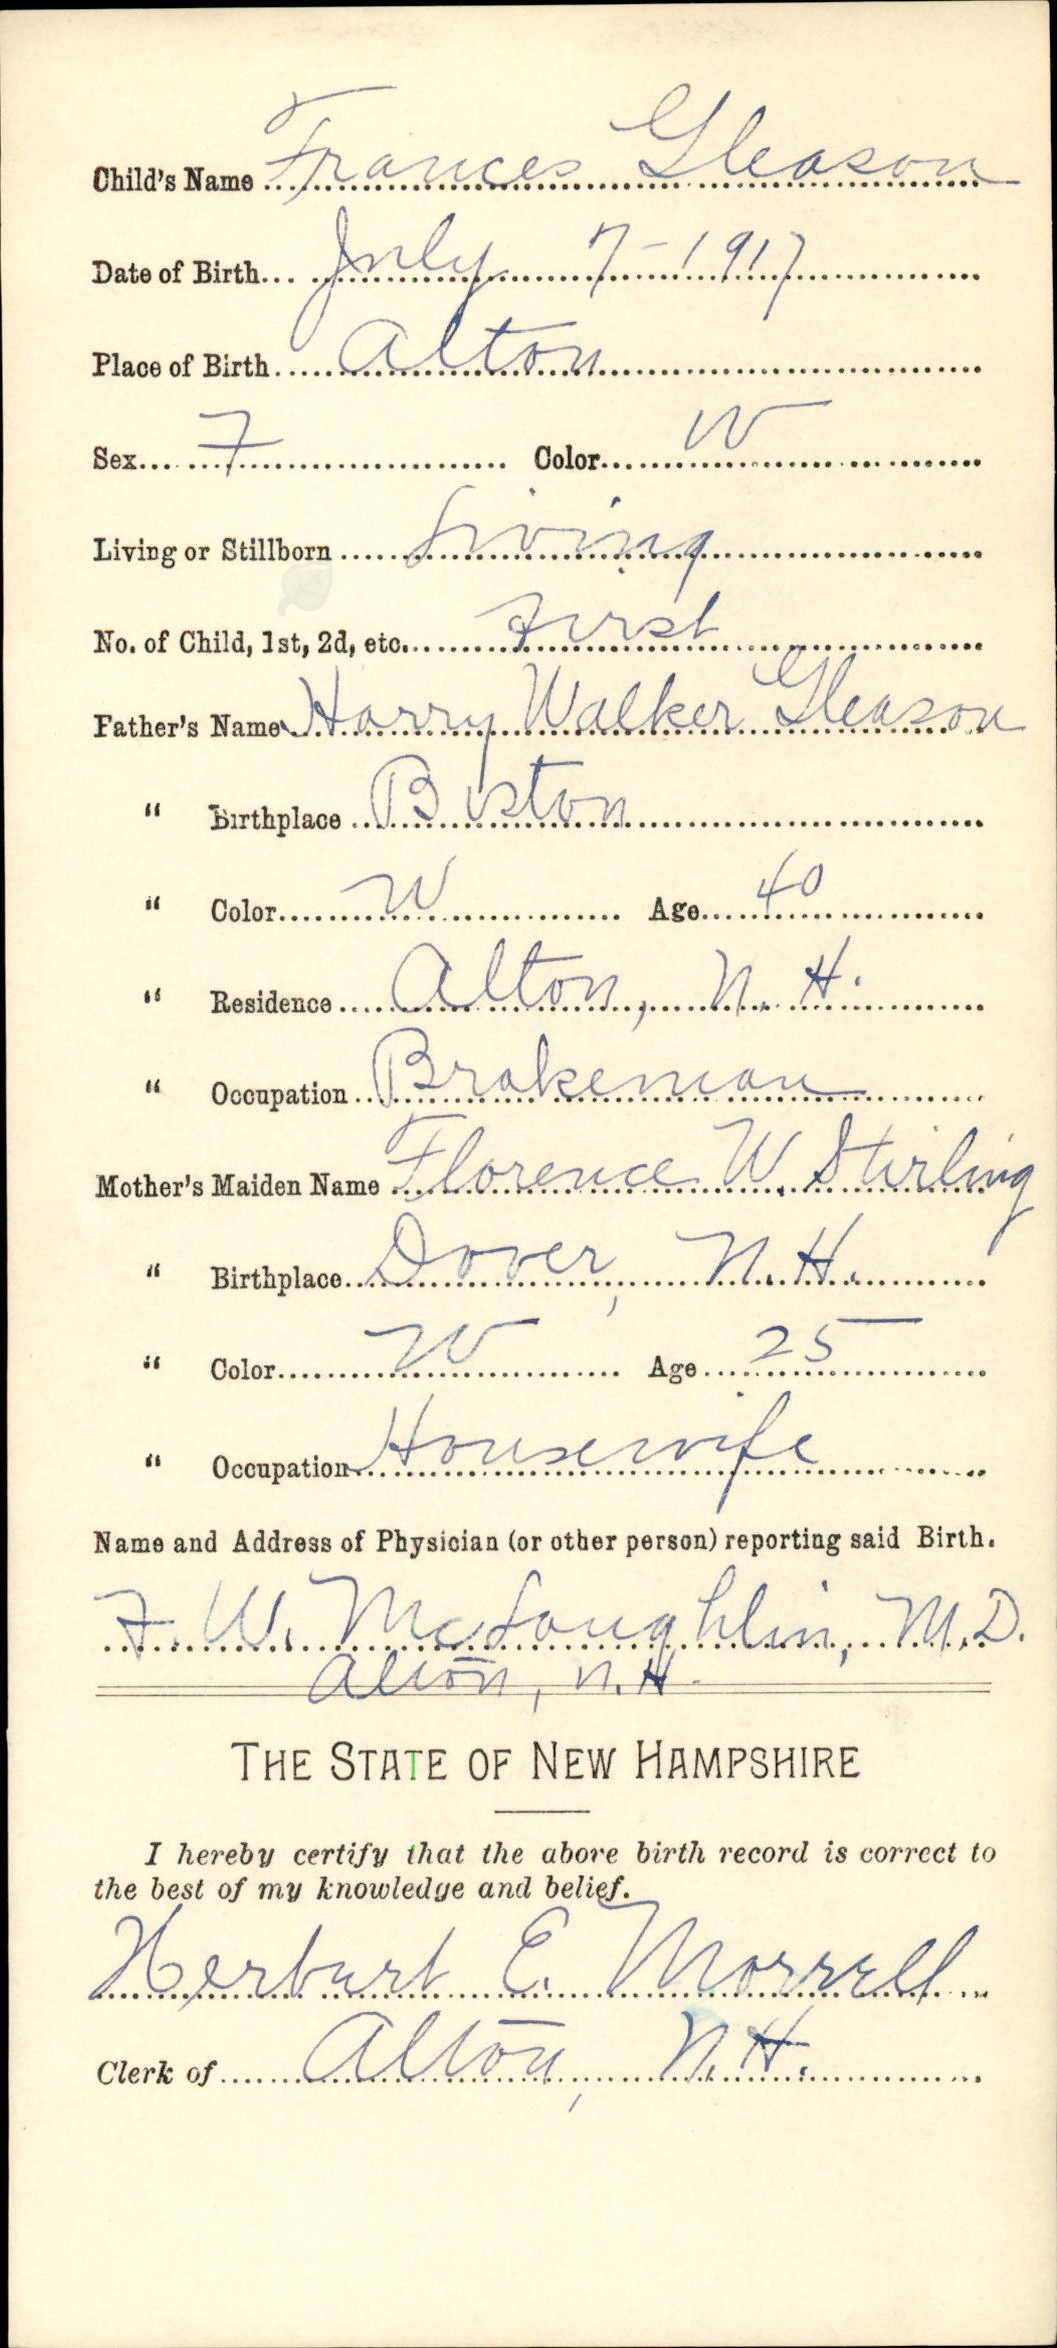 Child's Name Frances Gleason
Date of Birth July 7-1917
Place of Birth Alton
Sex F Color W
Living or Stillborn Living
No. of Child, 1st, 2d, etc. First
Father's Name Harry Walker Gleason
" Birthplace Boston
" Color W Age 40
" Residence Alton, N. H.
" Occupation Brakeman
Mother's Maiden Name Florence W. Stirling
" Birthplace Dover, N.H.
" Color W Age 25
" Occupation Housewife
Name and Address of Physician (or other person) reporting said Birth.
F. W. McLoughlin, M.D.
Alton, N.H.
THE STATE OF NEW HAMPSHIRE
I hereby certify that the above birth record is correct to
the best of my knowledge and belief.
Herbert E. Morrell
Clerk of Alton, N.H.